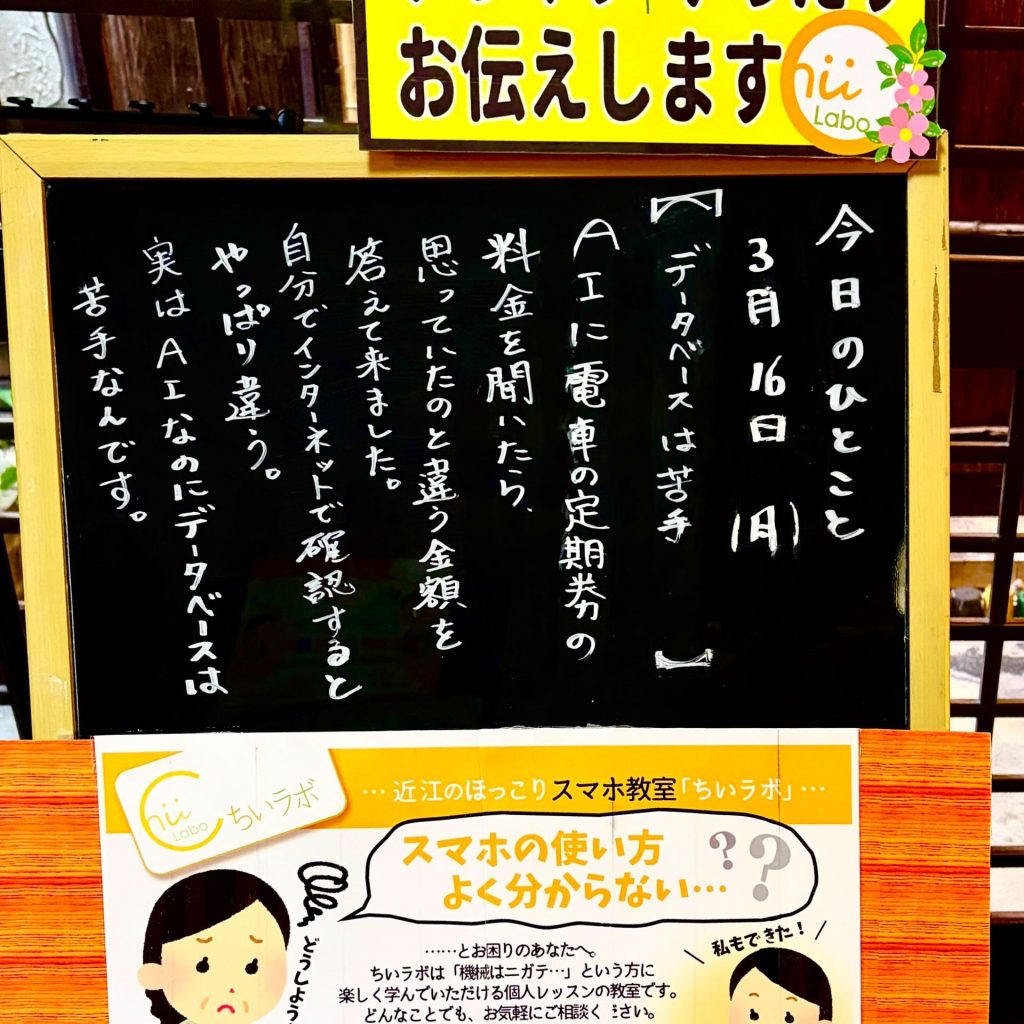 お伝えします
Chii
Labo
今日のひとこと
3月16日(月)
【データベースは苦手】
AIに電車の定期券の
料金を聞いたら、
思っていたのと違う金額を
答えて来ました。
自分でインターネットで確認すると
やっぱり違う。
実はAIなのにデータベースは
苦手なんです。
Chii
Labo
ちいラボ
…近江のほっこりスマホ教室「ちいラボ」…
スマホの使い方
よく分からない…
??
どうしよう
……とお困りのあなたへ。
ちいラボは「機械はニガテ…」という方に
楽しく学んでいただける個人レッスンの教室です。
どんなことでも、お気軽にご相談ください。
私もできた!